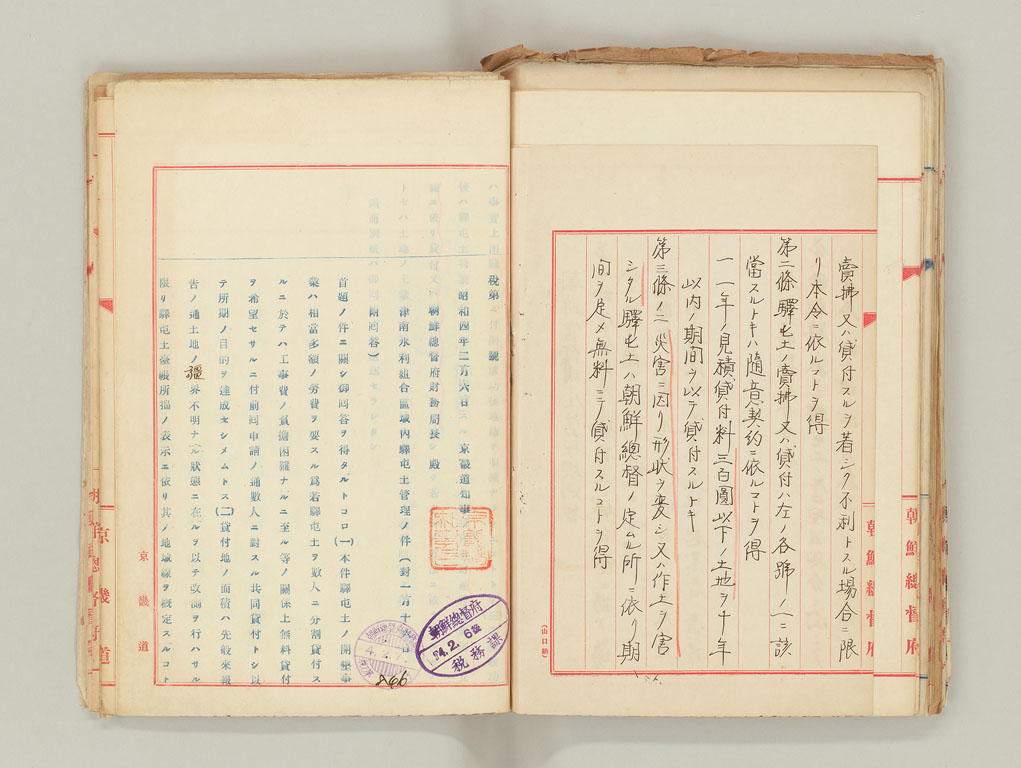 賣拂又ハ貸付スルヲ著シク不利トスル場合ニ限
リ本令ニ依ルコトヲ得
第二條驛屯土ノ賣拂又ハ貸付ハ左ノ各號ノ一ニ該
當スルトキハ隨意契約ニ依ルコトヲ得
一 一年ノ見積貸付料三百圓以下ノ土地ヲ十年
以内ノ期間ヲ以テ貸付スルトキ
第三條ノ二 災害ニ因リ形狀ヲ變シ又ハ作土ヲ害
シタル驛屯土ハ朝鮮總督ノ定ムル所ニ依リ期
間ヲ定メ無料ニテ貸付スルコトヲ得
朝鮮總督府
朝鮮總督府
(山口納)
稅第 號
昭和四年二月六日 京畿道知事
朝鮮總督府財務局長 殿
津南水利組合區域內驛屯土管理ノ件(對一月十
期回答)
首題ノ件ニ關シ御回答ヲ得タルトコロ(一)本件驛屯土ノ開墾事
業ハ相當多額ノ勞費ヲ要スル爲若驛屯土ヲ數人ニ分割貸付ス
ルニ於テハ工事費ノ負擔困難ナルニ至ル等ノ關係上無料貸付
ヲ希望セサルニ付前回申請ノ通數人ニ對スル共同貸付トシ以
テ所期ノ目的ヲ達成セシメムトス(二)貸付地ノ面積ハ先般來報
告ノ通土地ノ疆界不明ナル狀態ニ在ルヲ以テ改測ヲ行ハサル
限リ驛屯土臺帳所揭ノ表示ニ依リ其ノ地域線ヲ概定スルコト
京畿道
朝鮮總督府
4.2.6
稅務課
866
京畿道